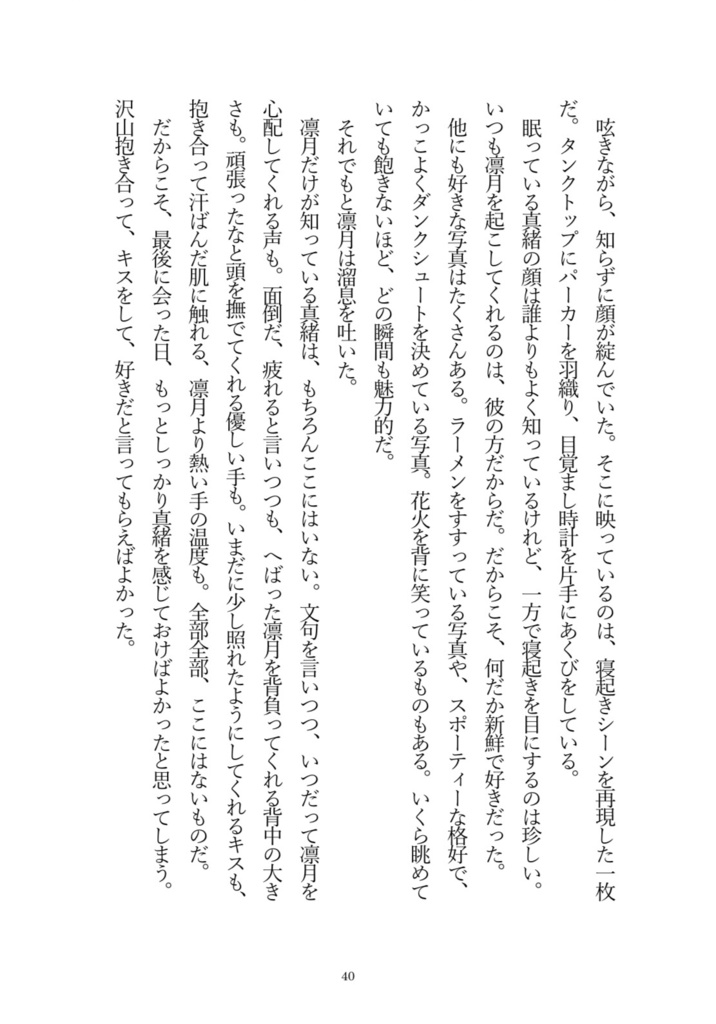 呟きながら、知らずに顔が綻んでいた。そこに映っているのは、寝起きシーンを再現した一枚
だ。タンクトップにパーカーを羽織り、目覚まし時計を片手にあくびをしている。
　眠っている真緒の顔は誰よりもよく知っているけれど、一方で寝起きを目にするのは珍しい。
いつも凛月を起こしてくれるのは、彼の方だからだ。だからこそ、何だか新鮮で好きだった。
　他にも好きな写真はたくさんある。ラーメンをすすっている写真や、スポーティーな格好で、
かっこよくダンクシュートを決めている写真。花火を背に笑っているものもある。いくら眺めて
いても飽きないほど、どの瞬間も魅力的だ。
　それでもと凛月は溜息を吐いた。
　凛月だけが知っている真緒は、もちろんここにはいない。文句を言いつつ、いつだって凛月を
心配してくれる声も。面倒だ、疲れると言いつつも、へばった凛月を背負ってくれる背中の大き
さも。頑張ったなと頭を撫でてくれる優しい手も。いまだに少し照れたようにしてくれるキスも、
抱き合って汗ばんだ肌に触れる、凛月より熱い手の温度も。全部全部、ここにはないものだ。
　だからこそ、最後に会った日、もっとしっかり真緒を感じておけばよかったと思ってしまう。
沢山抱き合って、キスをして、好きだと言ってもらえばよかった。
40